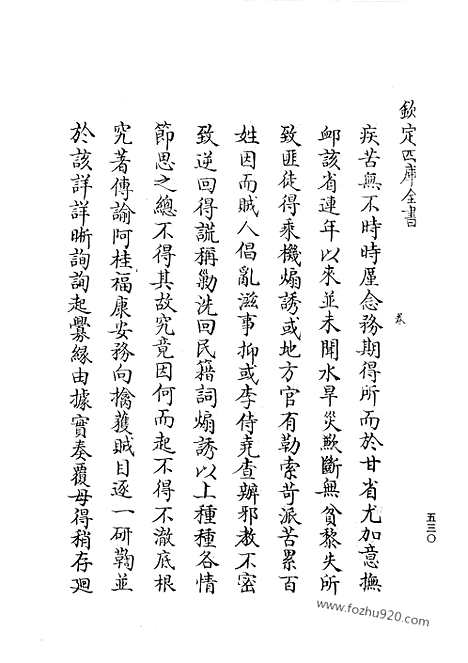 欽定四庫全書
卷
疾苦無不時時厪念務期得所而於甘省尤加意撫
卹該省連年以來並未聞水旱災歉斷無貧黎失所
致匪徒得乘機煽誘或地方官有勒索苛派苦累百
姓因而賊人倡亂滋事抑或李侍堯查辦邪教不密
致逆回得謊稱勦洗回民藉詞煽誘以上種種各情
節思之總不得其故究竟因何而起不得不澈底根
究著傳諭阿桂福康安務向擒獲賊目逐一研鞫並
於該詳詳晰詢詢起釁緣由據實奏覆毋得稍存迴
五三〇
www.fozhu920.com